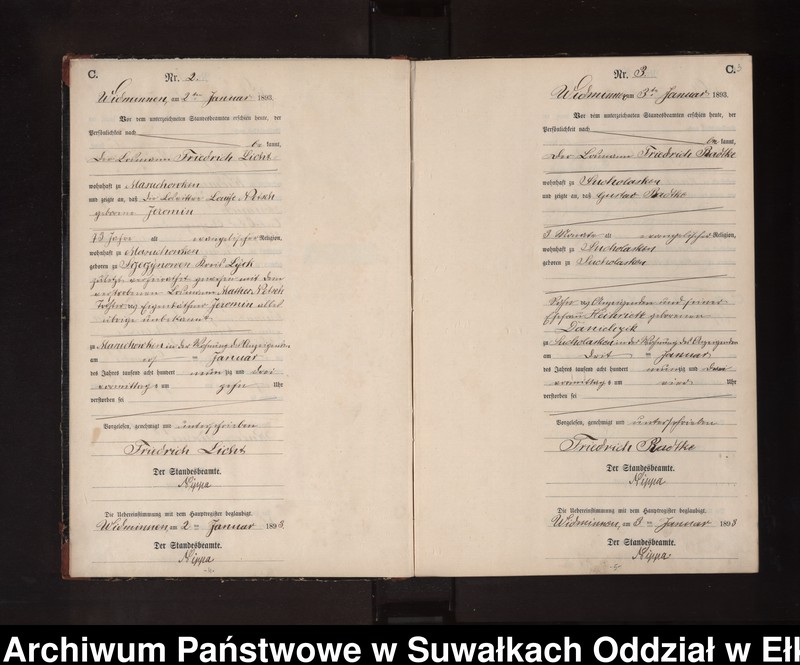 C.
Nr. 2.
Widminnen, am 2ten Januar 1893.
Vor dem unterzeichneten Standesbeamten erschien heute, der
Persönlichkeit nach
be kannt,
Der Losmann Friedrich Licht
wohnhaft zu Masuchowken
und zeigte an, daß Die Loswittwe Louise
geborene Jeromin
73 Jahre alt evangelischer Religion,
wohnhaft zu Masuchowken
geboren zu Kreis Lyck
zuletzt verheirathet gewesen mit dem
verstorbenen Losmann
Tochter des Eigenkäthner Jeromin alles
übrige unbekannt.
zu Masuchowken in der Wohnung des Anzeigenden
am ten Januar
des Jahres tausend acht hundert neunzig und drei
Vormittags um zehn Uhr
verstorben sei
Vorgelesen, genehmigt und unterschrieben
Friedrich Licht
Der Standesbeamte.
Nippa
Die Uebereinstimmung mit dem Hauptregister beglaubigt.
Widminnen, am 2ten Januar 1893
Der Standesbeamte.
Nippa
C.
Nr. 3.
Widminnen am 3ten Januar 1893.
Vor dem unterzeichneten Standesbeamten erschien heute, der
Persönlichkeit nach
be kannt,
Der Losmann Friedrich Radtke
wohnhaft zu Sucholasken
und zeigte an, daß Gustav Radtke
3 Monate alt evangelischer Religion,
wohnhaft zu Sucholasken
geboren zu Sucholasken
Sohn des Anzeigenden und seiner
Ehefrau Heinriett geborenen
Danielczik
zu Sucholasken in der Wohnung des Anzeigenden
am ten Januar
des Jahres tausend acht hundert neunzig und drei
Vormittags um vier Uhr
verstorben sei
Vorgelesen, genehmigt und unterschrieben
Friedrich Radtke
Der Standesbeamte.
Nippa
Die Uebereinstimmung mit dem Hauptregister beglaubigt.
Widminnen, am 3ten Januar 1893
Der Standesbeamte.
Nippa
Archiwum Państwowe w Suwałkach Oddział w Ełk